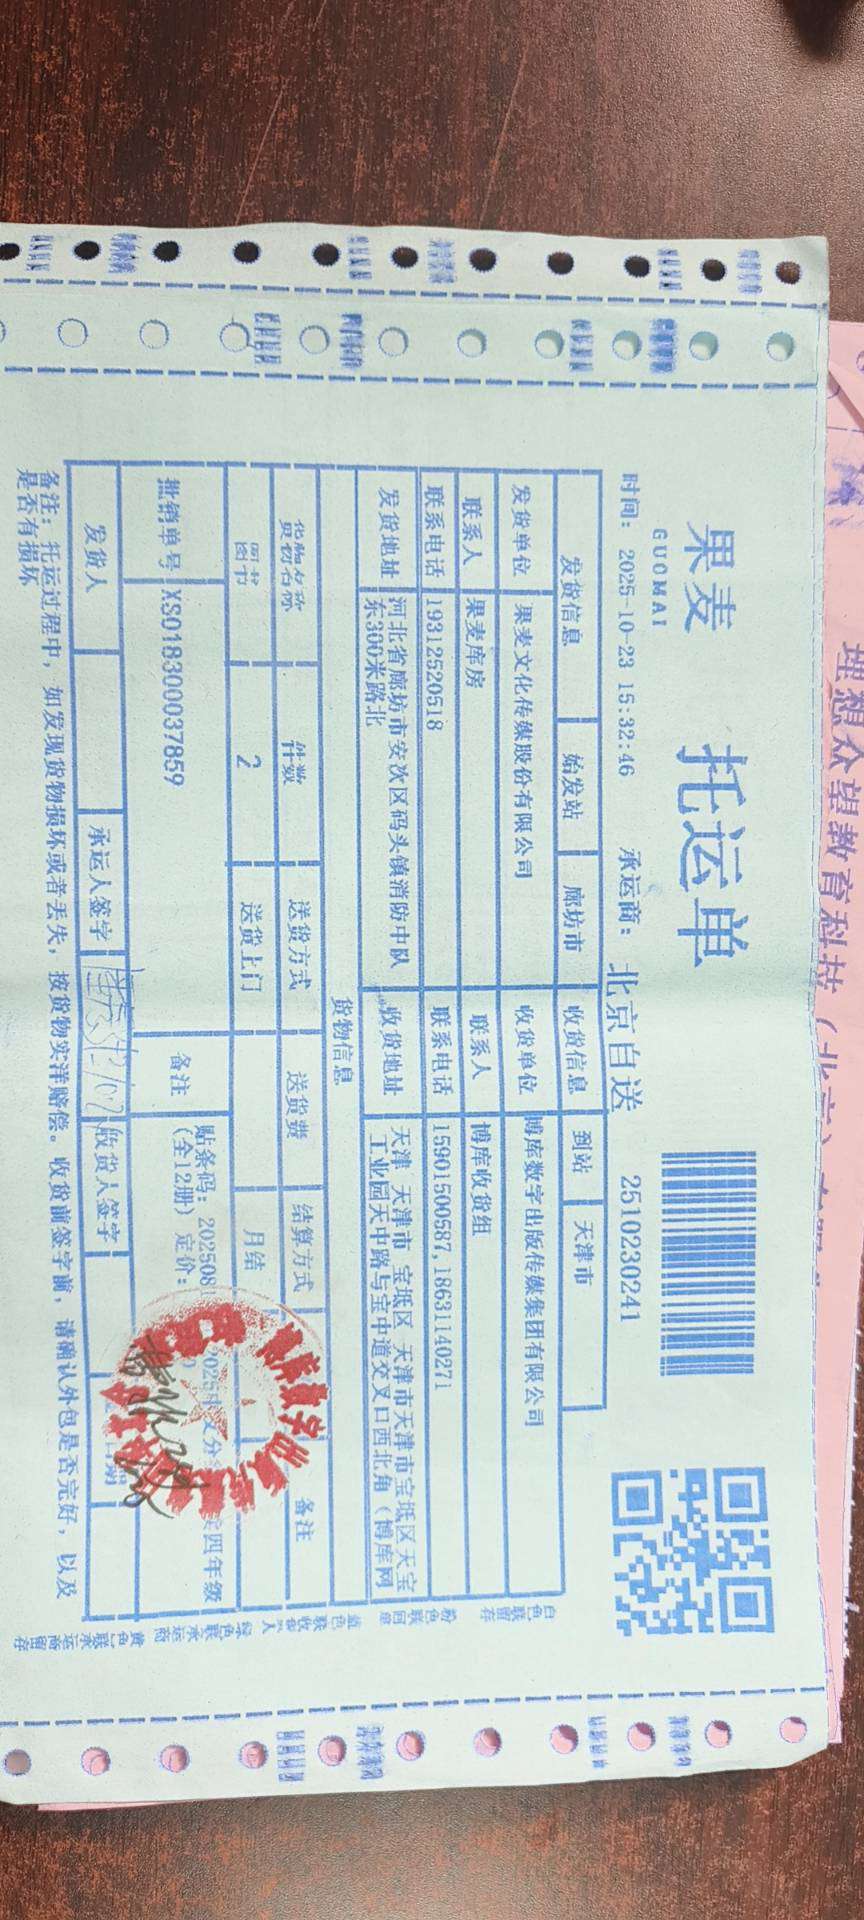 果麦
GUOMAI
托运单
2510230241
时间: 2025-10-23 15:32:46 承运商: 北京自送
发货信息 始发站 廊坊市 收货信息 到站 天津市
发货单位 果麦文化传媒股份有限公司 收货单位 博库数字出版传媒集团有限公司
联系人 果麦库房 联系人 博库收货组
联系电话 19312520518 联系电话 15901500587,18631140271
发货地址 河北省廊坊市安次区码头镇消防中队 收货地址 天津 天津市 宝坻区 天津市天津市宝坻区天宝
东300米路北 工业园天中路与宝中道交叉口西北角(博库网
货物信息
货物名称 件数 送货方式 送货费 结算方式 备注
图书 2 送货上门 月结
批销单号 XS018300037859 备注 贴条码: 202508 2025 四年级
(全12册) 定价:
发货人 承运人签字 收货人签字 日期
备注: 托运过程中, 如发现货物损坏或者丢失, 按货物实洋赔偿。收货前签字前, 请确认外包是否完好, 以及
是否有损坏
白色联留存 粉色联回单 蓝色联收货人 绿色联承运商 黄色联承运商留存
理想众望教育科技(北京)有限